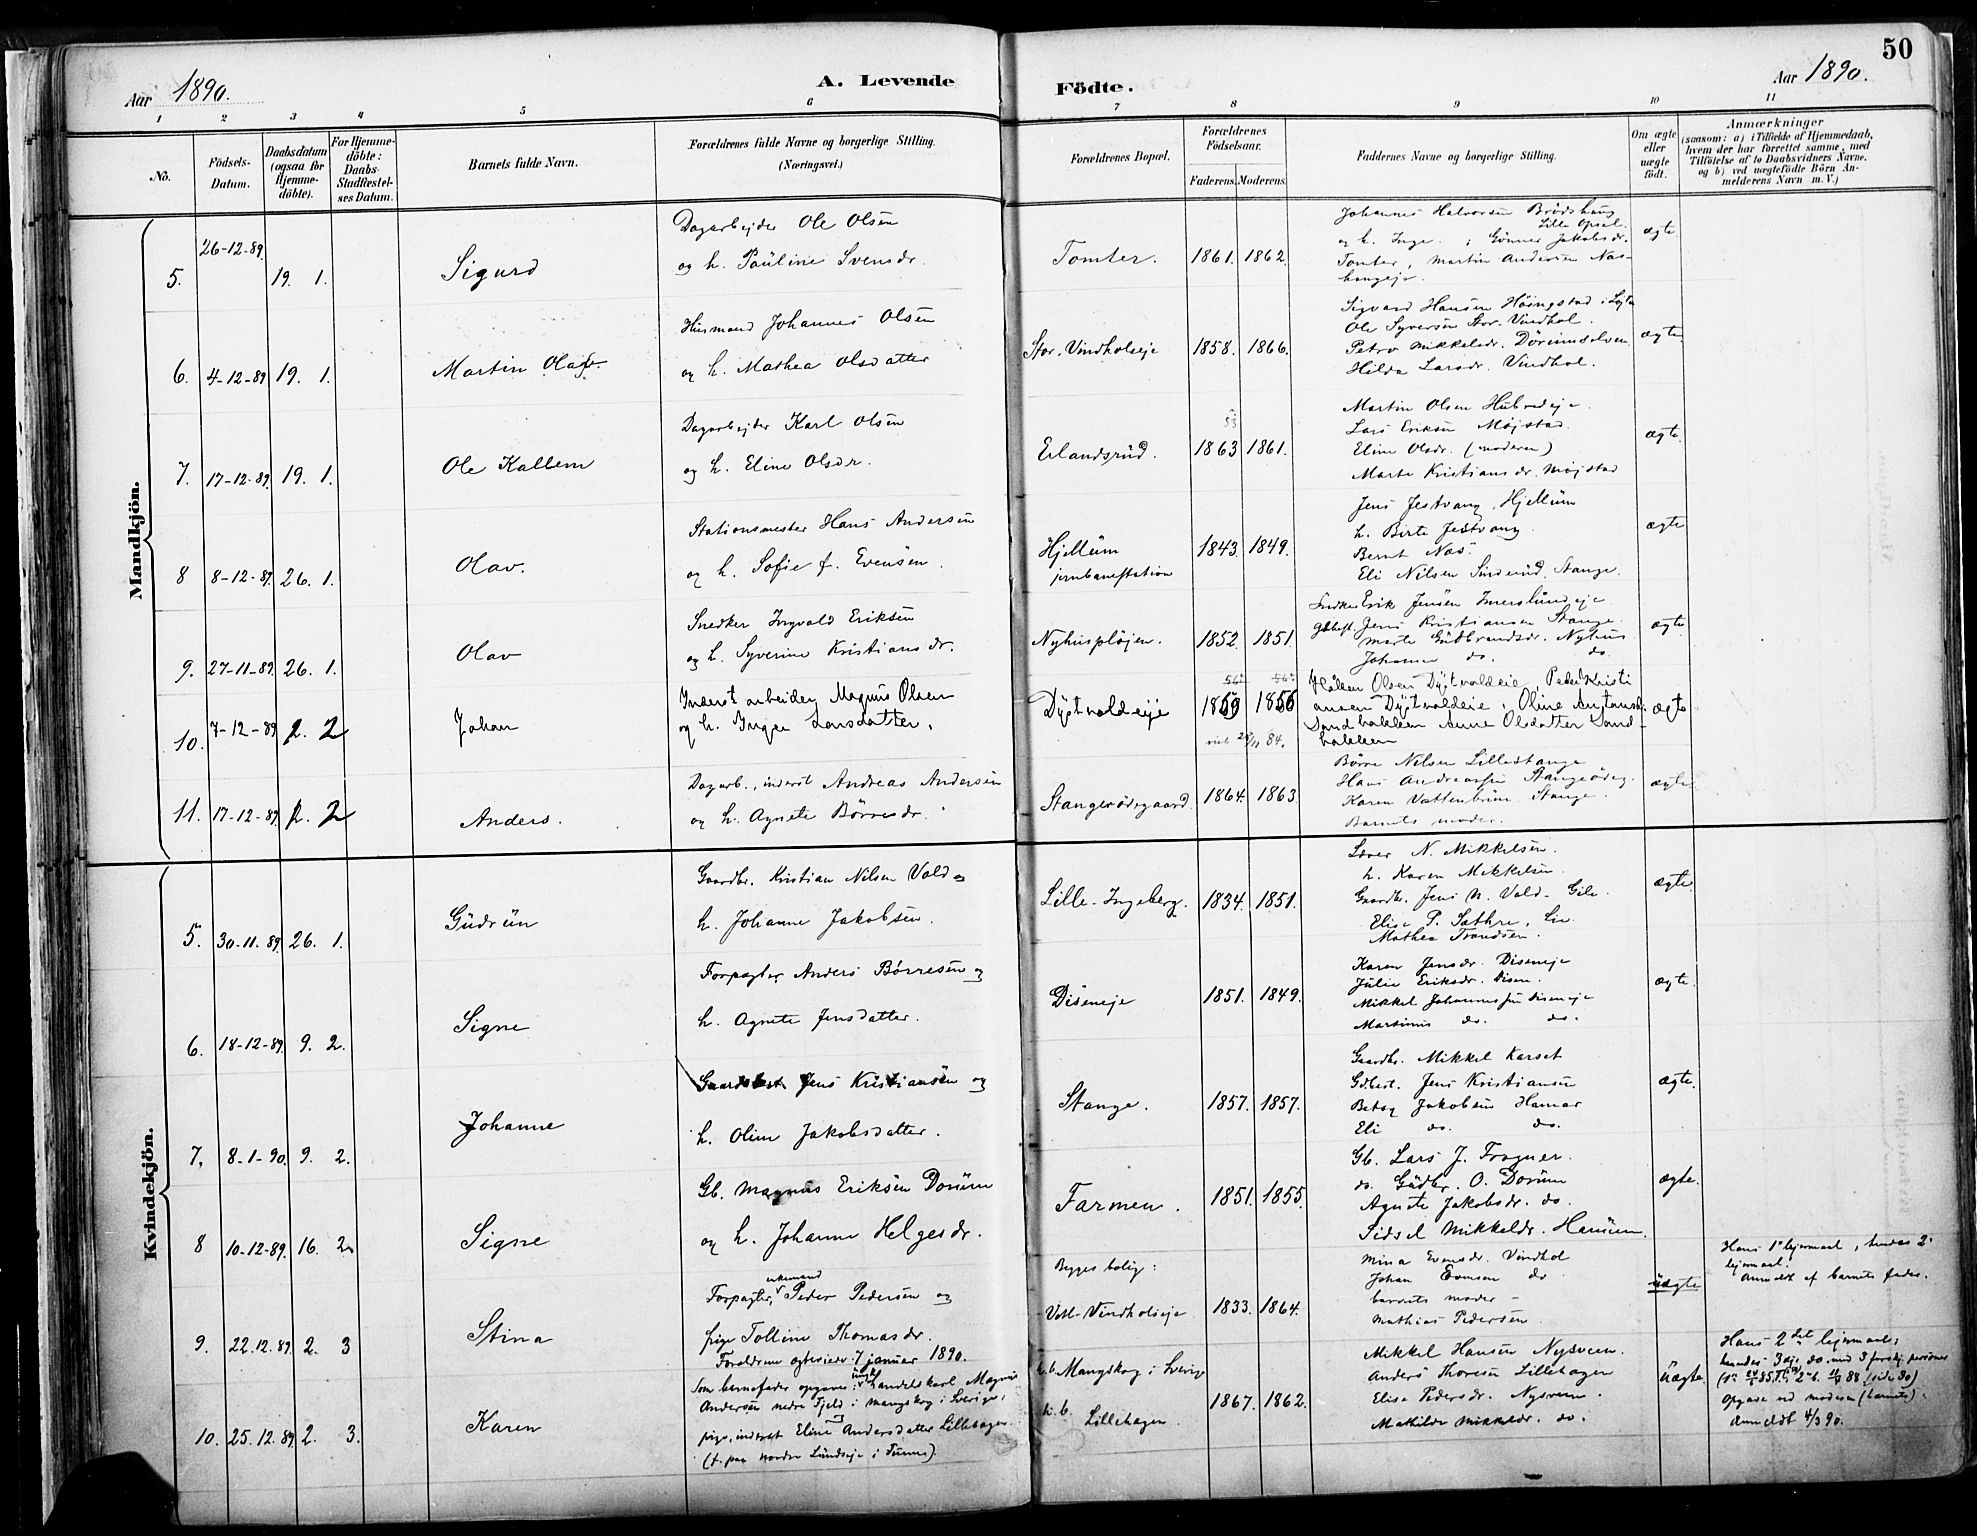 50
Aar 1890.
A. Levende
Födte.
Aar 1890.
1 2 3 4 5 6 7 8 9 10 11
No.
Födsels-Datum.
Daabsdatum (ogsaa for Hjemme-döbte).
For Hjemme-döbte: Daabs-Stadfæstel-ses Datum.
Barnets fulde Navn.
Forældrenes fulde Navne og borgerlige Stilling. (Næringsvei.)
Forældrenes Bopæl.
Forældrenes Födselsaar.
Faderens. Moderens.
Faddernes Navne og borgerlige Stilling.
Om ægte eller uægte födt.
Anmærkninger
(saasom: a) i Tilfælde af Hjemmedaab,
hvem der har forrettet samme, med
Tilföielse af to Daabsvidners Navne,
og b) ved uægtefödte Börn An-
melderens Navn m. V.)
Mandkjön.
5. 26-12-89. 19. 1. Sigurd
Dagarbejder Ole Olsen
og h. Pauline Svensdr.
Tomter. 1861. 1862.
Johannes Halvorsen Brödshaug
Lille Opsal
og h. Inge. ; Gunner Jakobsdr.
Tomter, Martin Andersen Nas-
hangeje.
ægte
6. 4-12-89 19. 1. Martin Olaf.
Husmand Johannes Olsen
og h. Mathea Olsdatter
Stor. Vindholseje 1858. 1866.
Sigvard Hansen Höingstad i Löjten
Ole Syversen Stor-Vindhol.
Petra Mikkelsdr. Dörumselven
Hilda Larsdr. Vindhol.
ægte
7. 17-12-89. 19. 1. Ole Kallem
Dagarbejder Karl Olsen
og h. Eline Olsdr.
Erlandsrud. 1863 1861.
Martin Olsen Hubredeje.
Lars Eriksen Möjstad.
Eline Olsdr. (moderen)
Marte Kristiansdr. Möjstad
ægte
8 8-12-89. 26. 1. Olav.
Stationsmester Hans Andersen
og h. Sofie f. Evensen.
Hjellum
jernbanestation
1843. 1849.
Jens Jestvang, Hjellum
h. Birte Jestvang
Bernt Nas.
Eli Nilsen Sinderud, Stange.
ægte
9. 27-11-89. 26. 1. Olav
Snedker Ingvald Eriksen
og h. Syverine Kristiansdr.
Nyhuspløjen. 1852. 1851.
Snedker Erik Jensen Imerslundeje
Jens Kristiansen Stange.
Marte Gudbrandsdr. Nyhus
Johanne do. do.
ægte
10. 7-12-89 2. 2 Johan
Inderst arbeider Magnus Olsen
og h. Inger Larsdatter.
Dystvoldseje 1856
Håken Olsen Dystvoldeie Peder Kristi
ansen Dystvoldeie, Oline Antonsd.
Sandbakken Anne Olsdatter Sand-
bakken
ægte
11. 17-12-89. 2. 2 Anders.
Dagarb., inderst Andreas Andersen
og h. Agnete Börresdr.
Stangeødegaard. 1864. 1863.
Börre Nilsen Lillestange
Hans Andreassen Stangeödeg.
Karen Vattenbrun Stange.
Barnets moder.
ægte
Kvindekjön.
5. 30-11.89. 26. 1. Gudrun
Gaardbr. Kristian Nilsen Vold og
h. Johanne Jakobsen.
Lille-Ingeberg. 1834. 1851.
Lærer N. Mikkelsen.
h. Karen Mikkelsen.
Gaardbr. Jens N. Vold-Gile.
Elise P. Sæthre, Lie
Mathea Trondsen.
ægte.
6. 18-12-89. 9. 2. Signe
Forpagter Anders Börresen og
h. Agnete Jensdatter.
Diseneje 1851. 1849.
Karen Jensdr. Diseneje
Julie Eriksdr. Disen.
Mikkel Johannessen Diseneje
Martinus do. do.
ægte.
7. 8-1-90. 9. 2. Johanne
Gaardbest. Jens Kristiansen og
h. Oline Jakobsdatter.
Stange. 1857. 1857.
Gaardbr. Mikkel Karset
Gdbest. Jens Kristiansen
Betsy Jakobsen Hamar
Eli do. do.
ægte.
8 10-12-89. 16. 2. Signe
Gb. Magnus Eriksen Dorum
og h. Johanne Helgesdr.
Farmen. 1851. 1855.
Gb. Lars J. Frogner.
do. Gudbr. O. Dorum
Agnete Jakobsdr. do.
Sidsel Mikkelsdr. Hansen.
ægte.
9. 22.12.89. 2. 3 Stina
Forpagter, enkemand Peder Pedersen og
pige Tolline Thomasdr.
Foreldrene ægteviede 7 januar 1890.
Begges bolig:
Vestl-Vindholseje 1833. 1864.
Mina Evensdr. Vindhol
Johan Evensen do
barnets moder -
Mathias Pedersen
uægte
Hans 1ste lejermaal, hendes 2det
lejermaal.
Anmeldt af barnets fader.
10. 25.12.89. 2. 3. Karen
Som barnefader opgaves: ungk. handelskarl Magnus
Andersen nedre Fjeld i Mangskog i Sverige,
pige, inderst Eline Andersdatter Lillehagen.
(f. paa nordre Lundseje i Furnes).
h.b. Mangskog i Sverige
h.b. Lillehagen
1867. 1862.
Mikkel Hansen Nysveen.
Anders Thoresen Lillehagen
Elise Pedersdr. Nysveen.
Mathilde Mikkelsdr. do.
uægte
Hans 2det lejermaal;
hendes 3dje do med 3 forskj. personer
Opgave ved moderen (barnets).
Anmeldt 4/3 90.